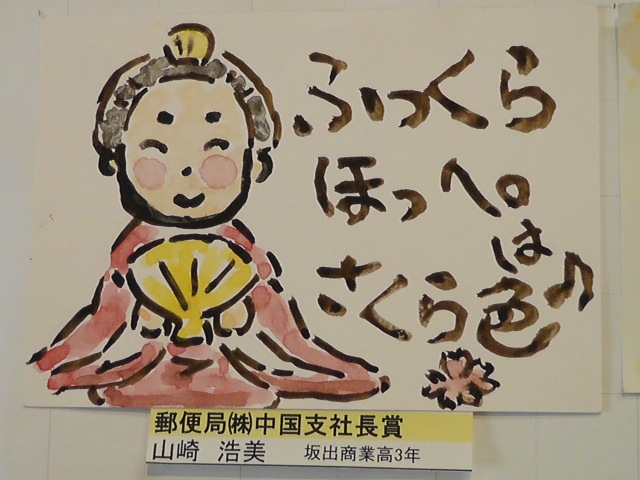 ふっくら
ほっぺは
さくら色♪
郵便局㈱中国支社長賞
山崎 浩美 坂出商業高3年